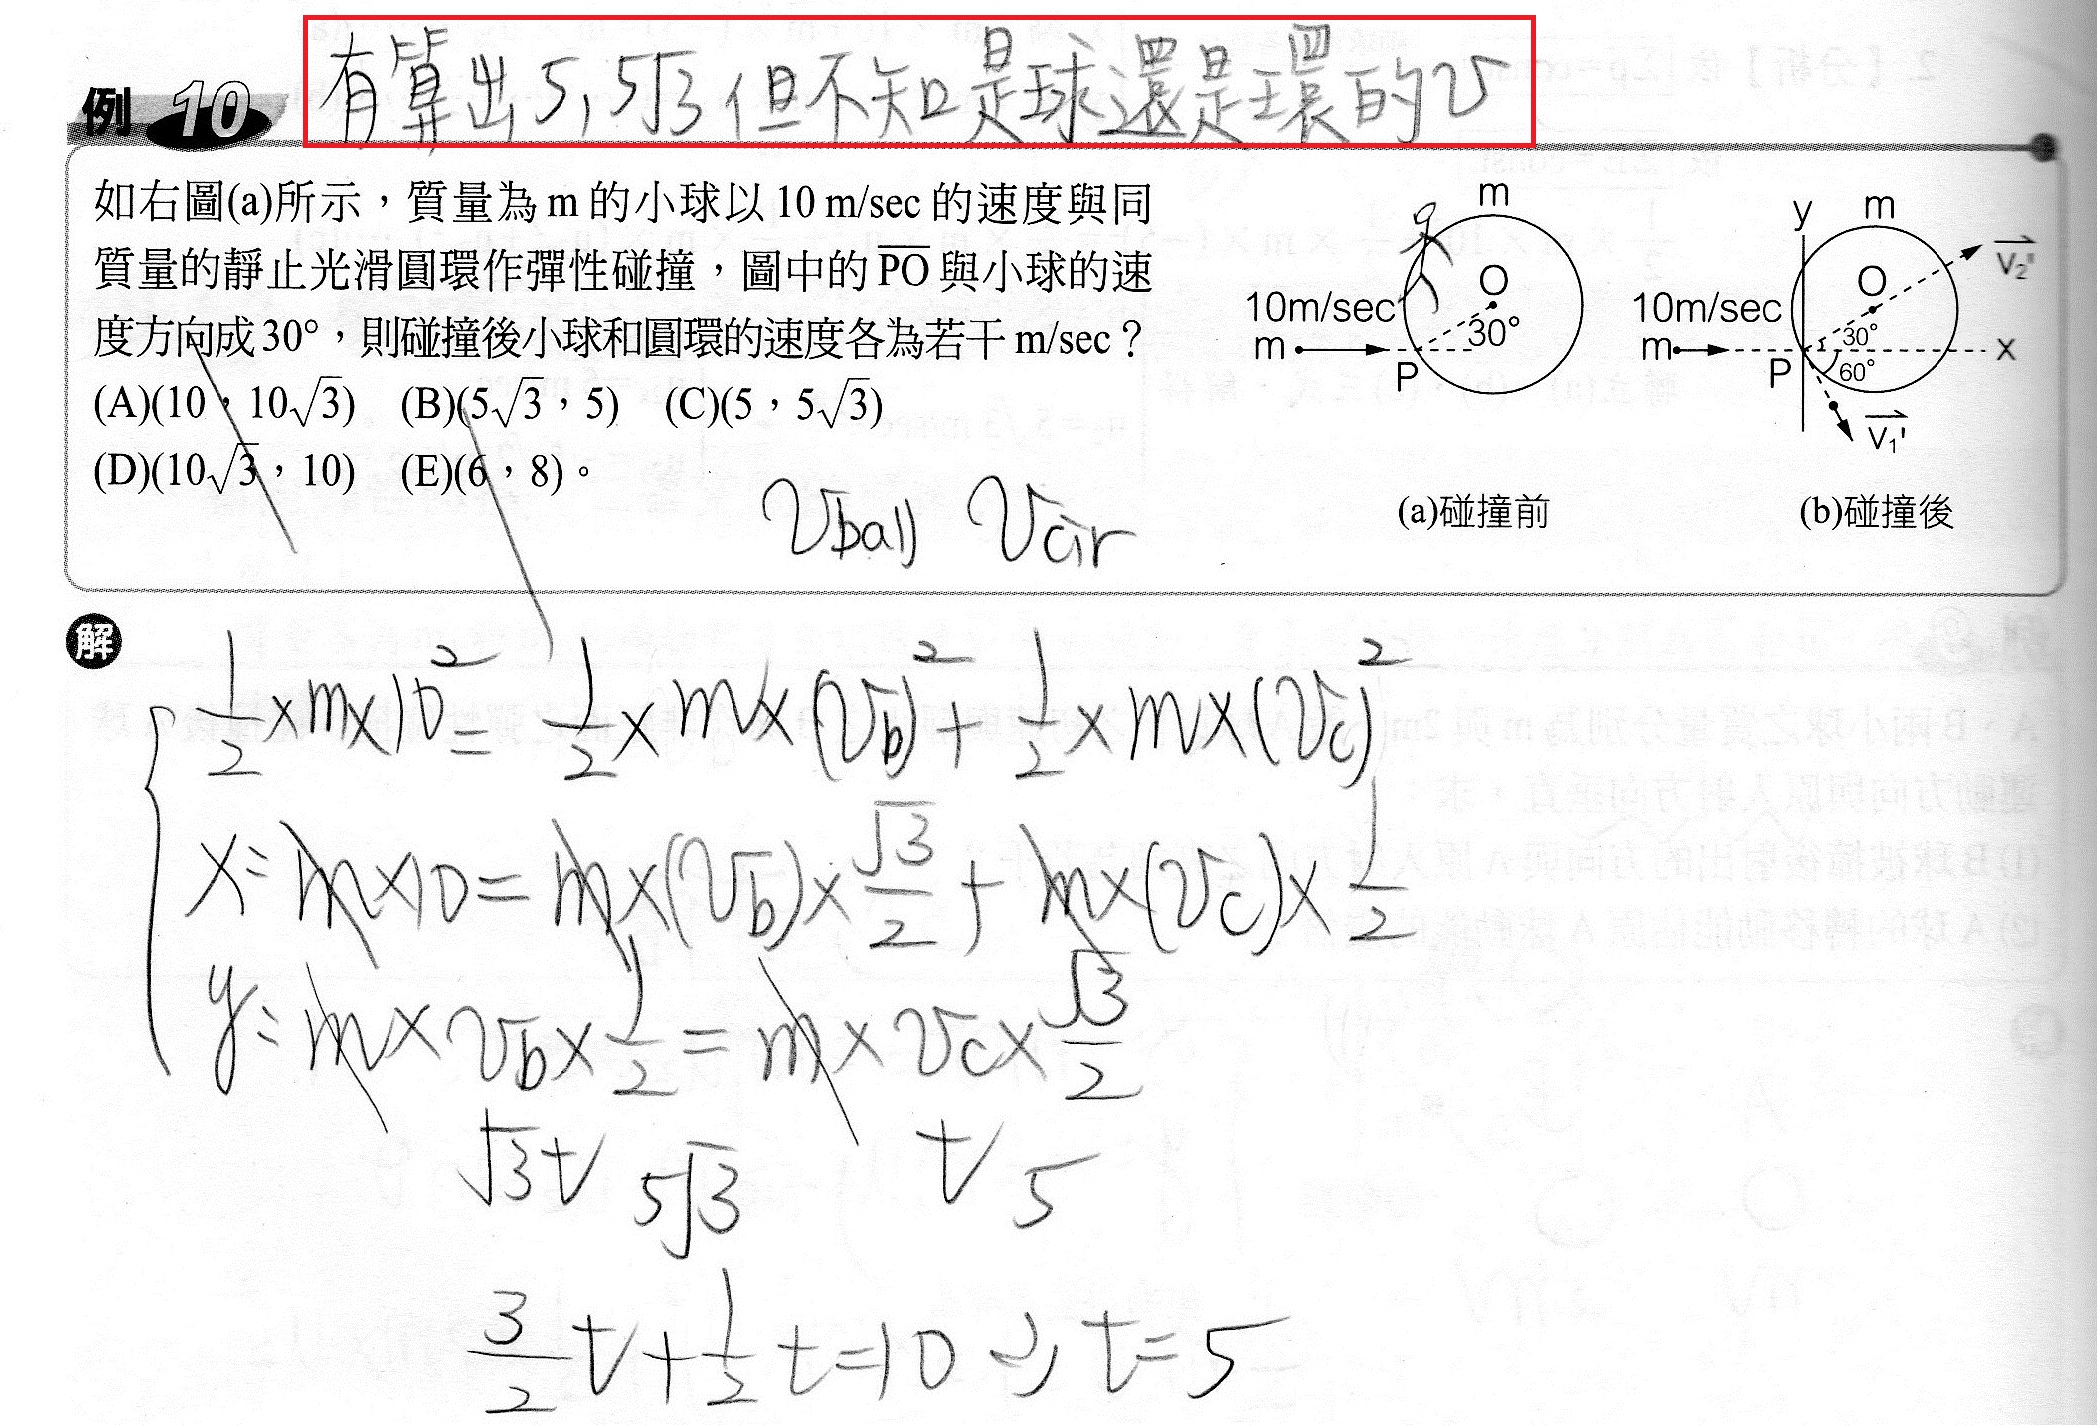 有算出5,5√3但不知是球還是環的v
例 10
如右圖(a)所示,質量為 m 的小球以 10 m/sec 的速度與同
質量的靜止光滑圓環作彈性碰撞,圖中的 PO 與小球的速
度方向成 30°,則碰撞後小球和圓環的速度各為若干 m/sec?
(A)(10,10√3) (B)(5√3,5) (C)(5,5√3)
(D)(10√3,10) (E)(6,8)。
m
O
10m/sec
30°
m
P
(a)碰撞前
y
m
V₂'
O
10m/sec
30°
m
x
P
60°
V₁'
(b)碰撞後
Vball Vcir
解
1/2×m×10²=1/2×m×(Vb)²+1/2×m×(Vc)²
x:m×10=m×(Vb)×√3/2+m×(Vc)×1/2
y:m×Vb×1/2=m×Vc×√3/2
√3t 5√3 t 5
3/2t+1/2t=10⇒t=5